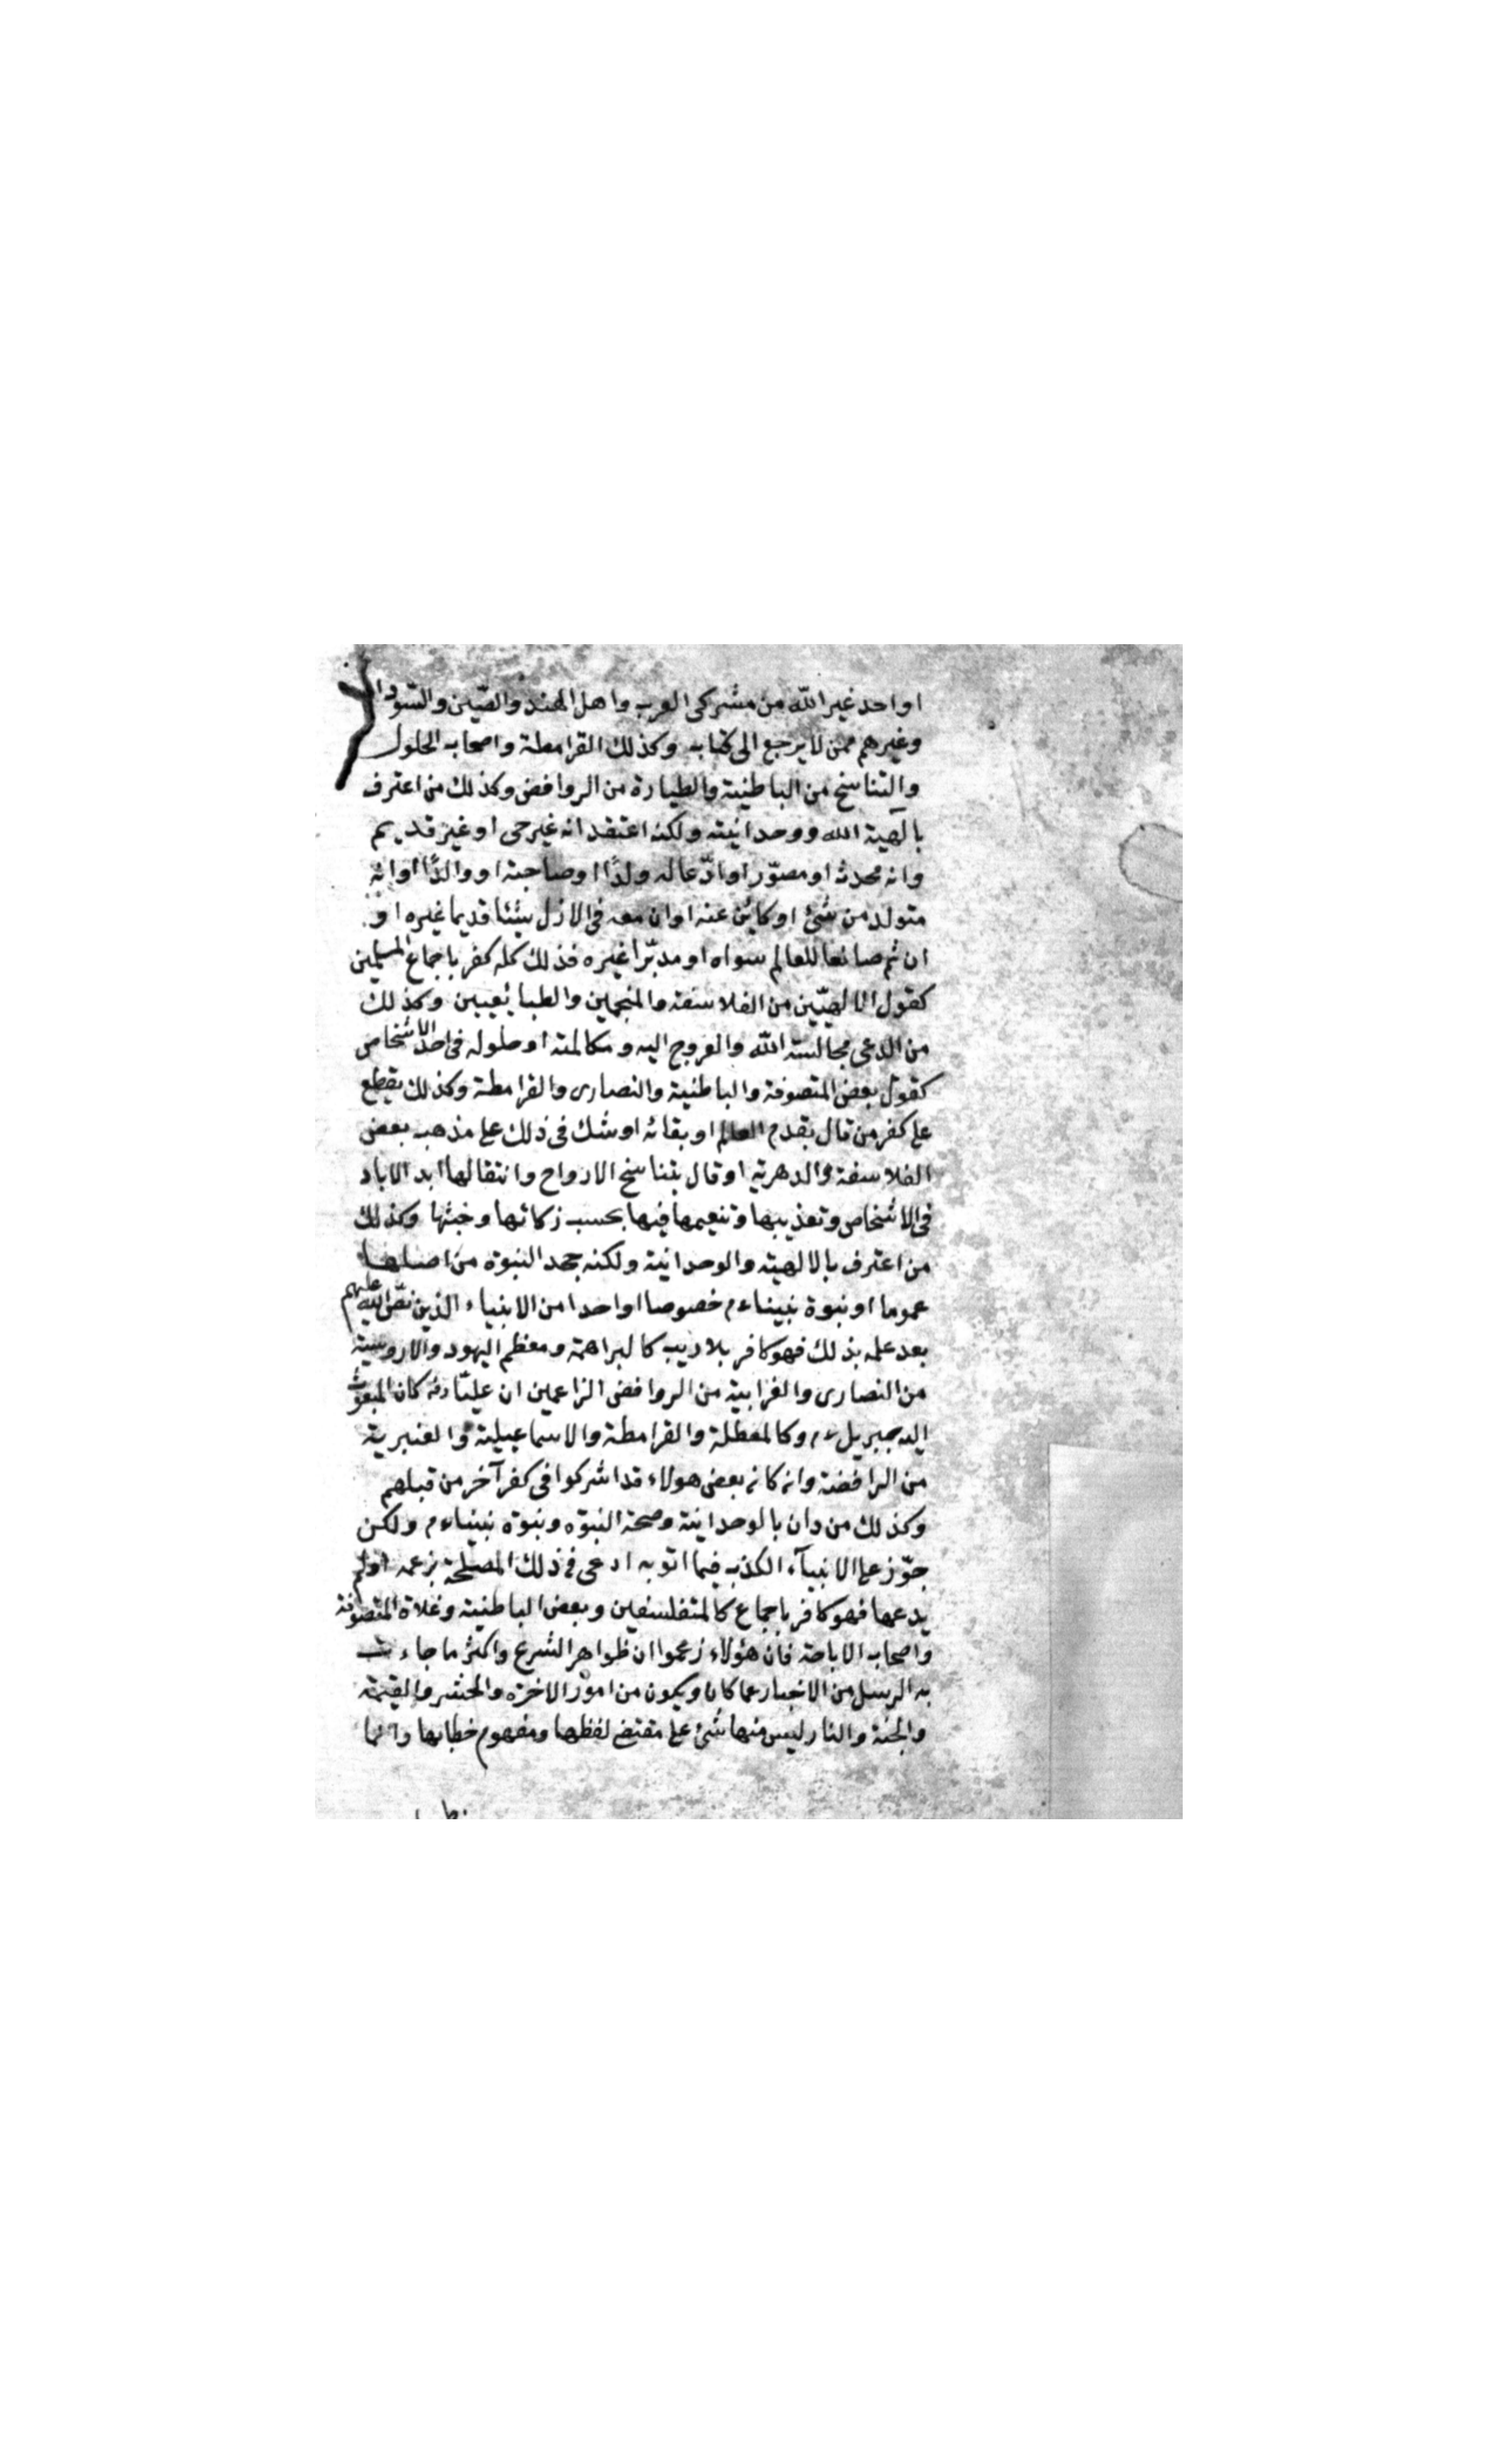 او احد غير الله من مشركى العرب واهل الهند والصّين والسّودان
وغيرهم ممن لا يرجع الى كتاب وكذلك القرامطة واصحاب الحلول
والتناسخ من الباطنية والطيارة من الروافض وكذلك من اعترف
بالهية الله ووحدانيته ولكنه اعتقد انه غير حى او غير قديم
وانه محدث او مصوّر او ادّعا له ولدًا او صاحبة او والدًا او انه
متولد من شئ او كائن عنه او ان معه فى الازل شيئا قديما غيره او
ان ثم صانعا للعالم سواه او مدبّرا غيره فذلك كله كفر باجماع المسلمين
كقول الالهيّين من الفلاسفة والمنجمين والطبايعيين وكذلك
من ادعى مجالسة الله والعروج اليه ومكالمته او حلوله فى احد الاشخاص
كقول بعض المتصوفة والباطنية والنصارى والقرامطة وكذلك يقطع
على كفر من قال بقدم العالم او بقائه او شك فى ذلك على مذهب بعض
الفلاسفة والدهرية او قال بتناسخ الارواح وانتقالها ابد الاباد
فى الاشخاص وتعذيبها وتنعيمها فيها بحسب زكائها وخبثها وكذلك
من اعترف بالالهية والوحدانية ولكنه جحد النبوة من اصلها
عموما او نبوة نبيناءم خصوصا او احدا من الانبياء الذين نصّ الله عليهم
بعد علمه بذلك فهو كافر بلا ريب كالبراهمة ومعظم اليهود والاروسية
من النصارى والغرابية من الروافض الزاعمين ان عليّا رضه كان المبعوث
اليه جبريل ءم وكالمعطلة والقرامطة والاسماعيلية والعنبرية
من الرافضة وان كان بعض هولاء قد اشركوا فى كفر آخر من قبلهم
وكذلك من دان بالوحدانية وصحة النبوّه ونبوّة نبيناءم ولكن
جوّز على الانبيآء الكذب فيما اتو به ادعى فى ذلك المصلحة بزعمه اولم
يدعها فهو كافر باجماع كالمتفلسفين وبعض الباطنية وغلاة المتصوفة
واصحاب الاباحة فان هؤلاء زعموا ان ظواهر الشرع واكثر ما جاءت
به الرسل من الاخبار عما كان ويكون من امور الاخرة والحشر والقيمة
والجنة والنار ليس منها شئ على مقتضى لفظها ومفهوم خطابها وانما